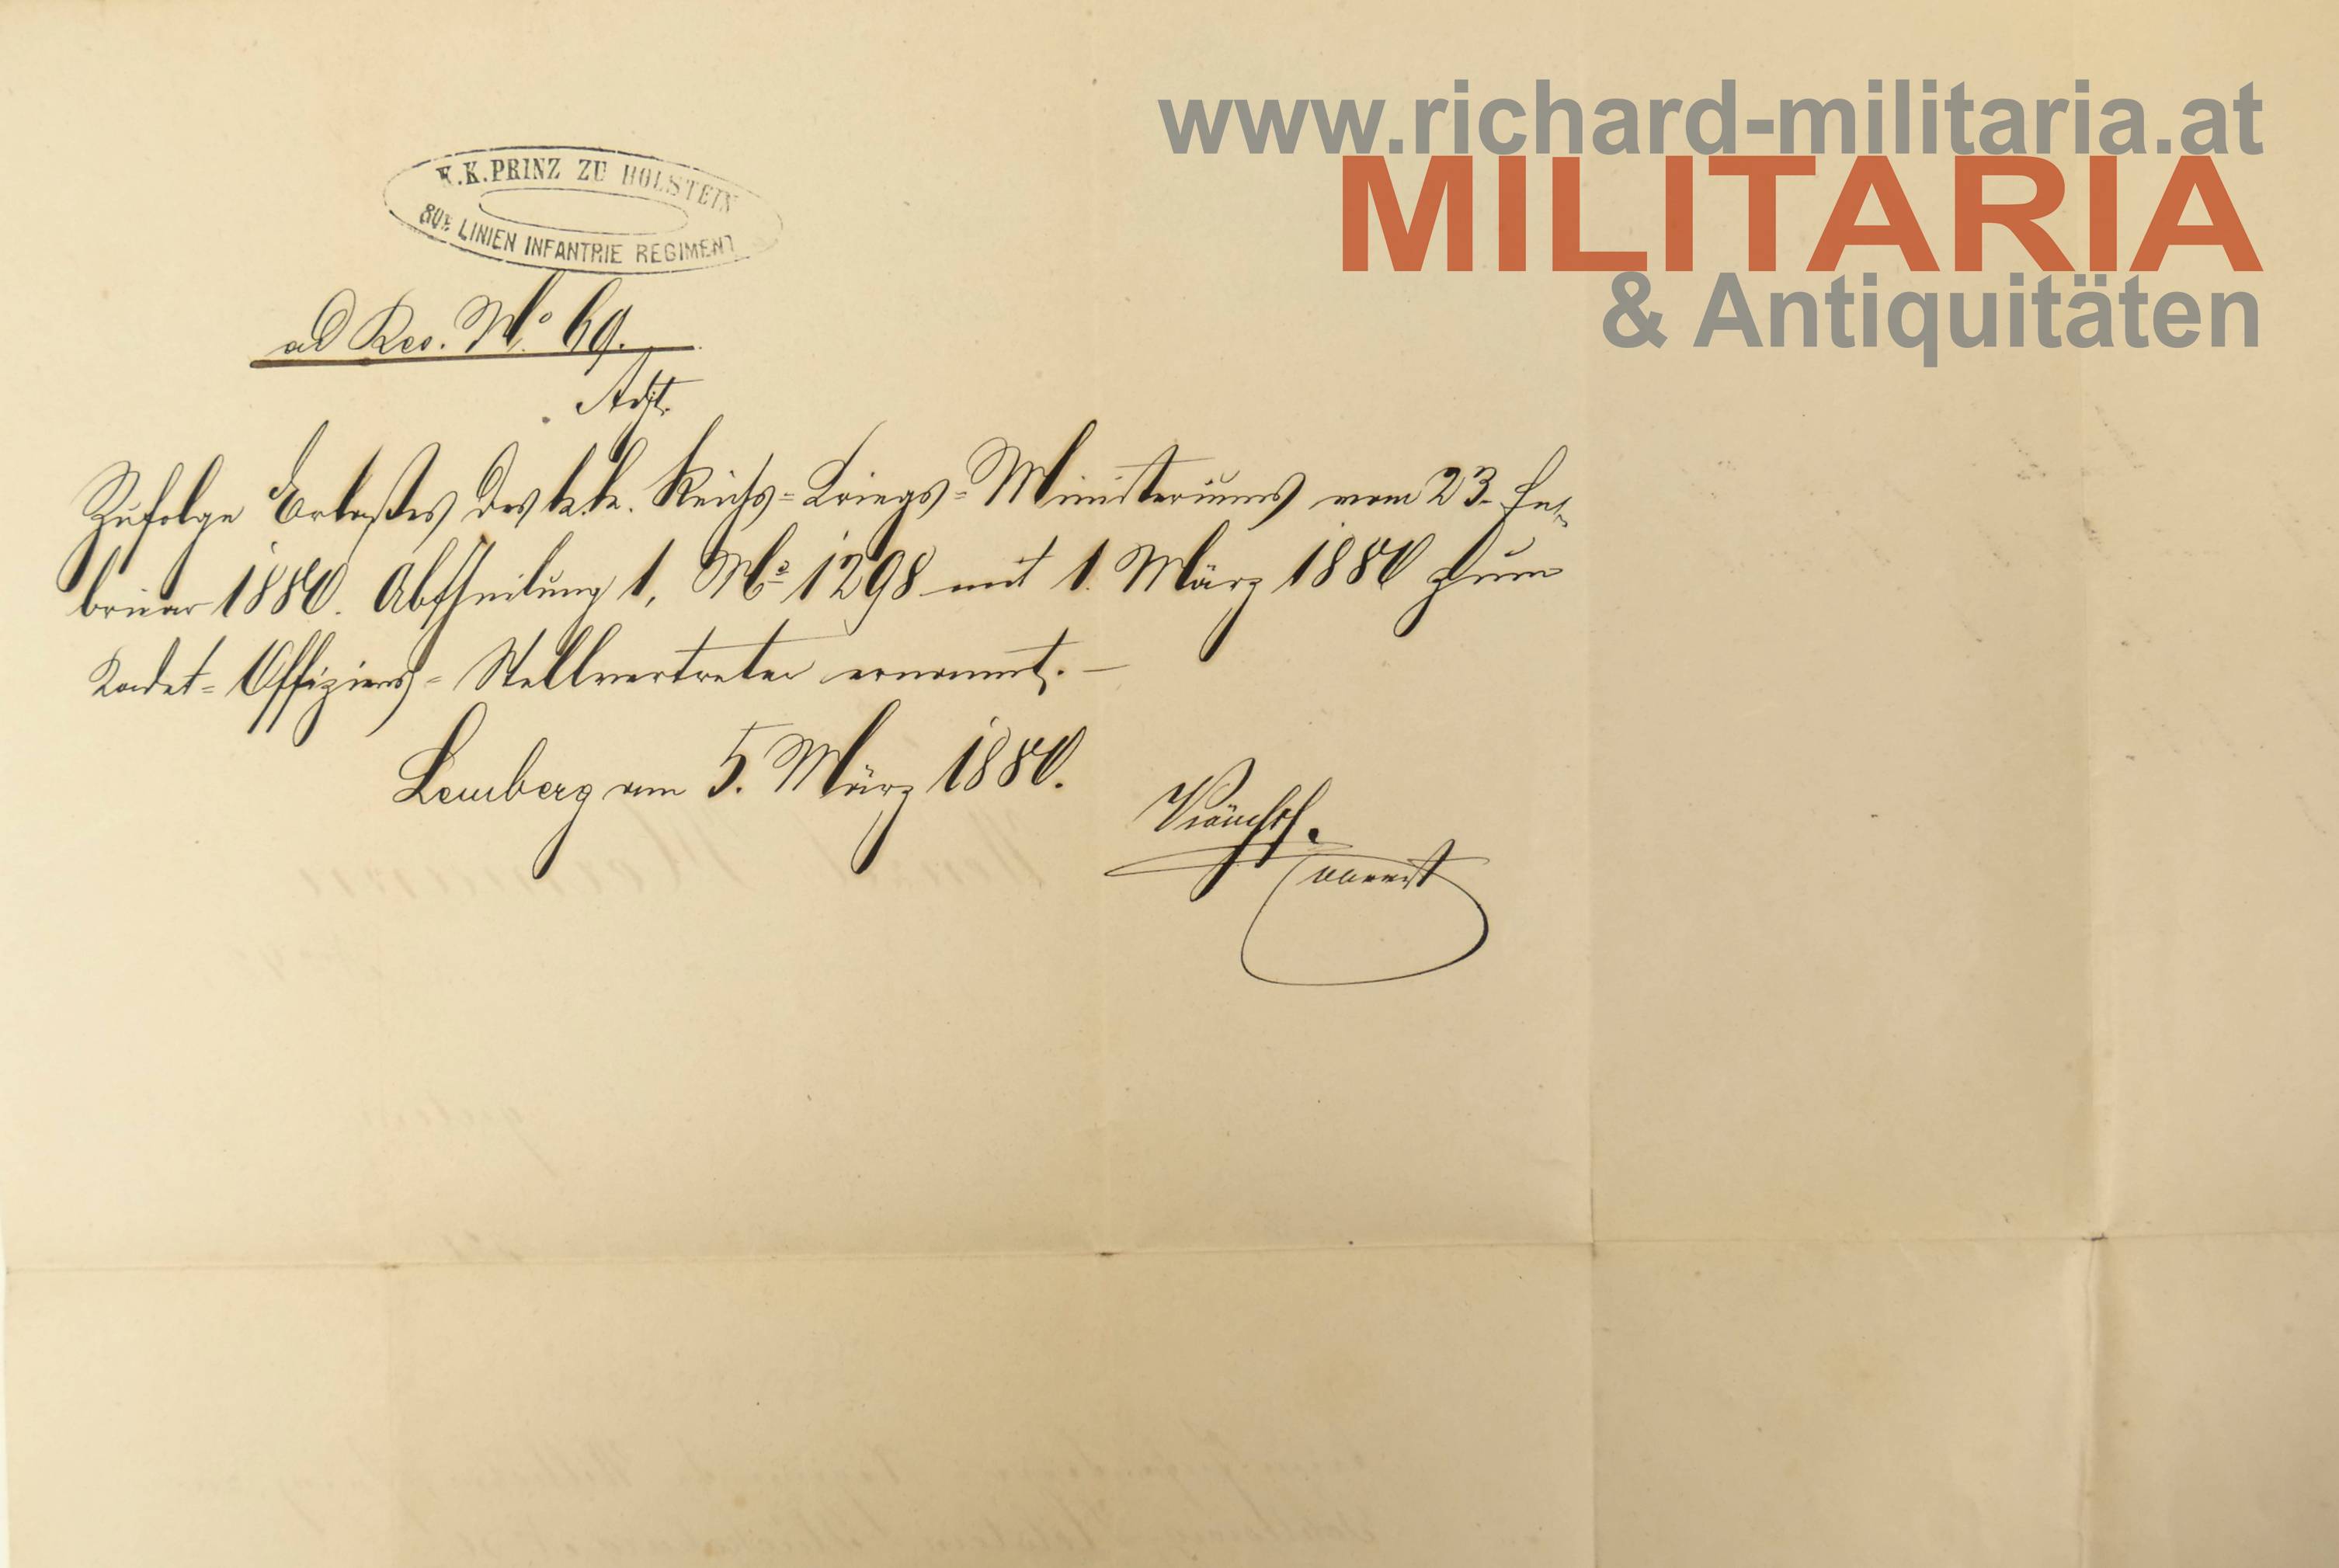 www.richard-militaria.at
MILITARIA
& Antiquitäten
K.K. PRINZ ZU HOLSTEIN
80tes LINIEN INFANTRIE REGIMENT
ad Res. No 69.
Adjt.
Zufolge Erlaßes des k.k. Reichs-Kriegs-Ministeriums vom 23. Fe-
bruar 1880. Abtheilung 1, No 1298 mit 1. März 1880 zum
Kadet-Offiziers-Stellvertreter ernannt. –
Lemberg am 5. März 1880.
Oberst